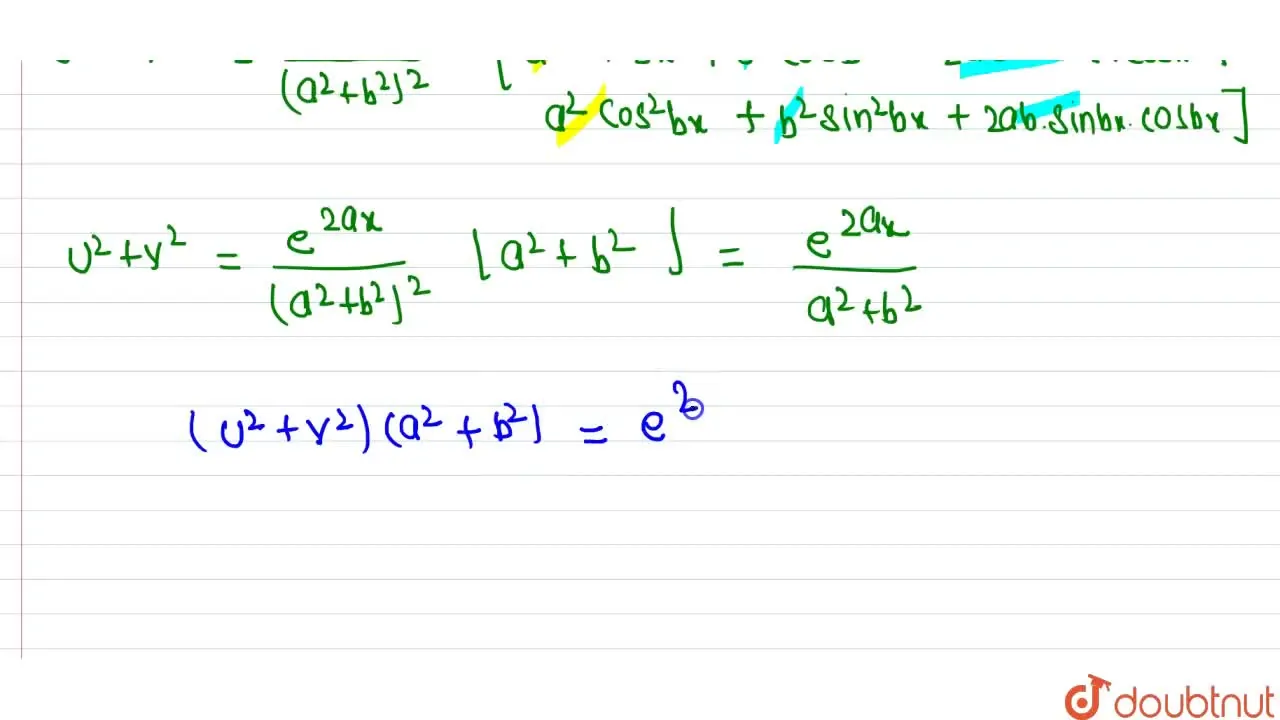 (a²+b²)²
a² cos²bx + b² sin²bx + 2ab.sinbx.cosbx]
u²+v² = e^2ax/(a²+b²)² [a²+b²] = e^2ax/a²+b²
(u²+v²)(a²+b²) = e²
doubtnut